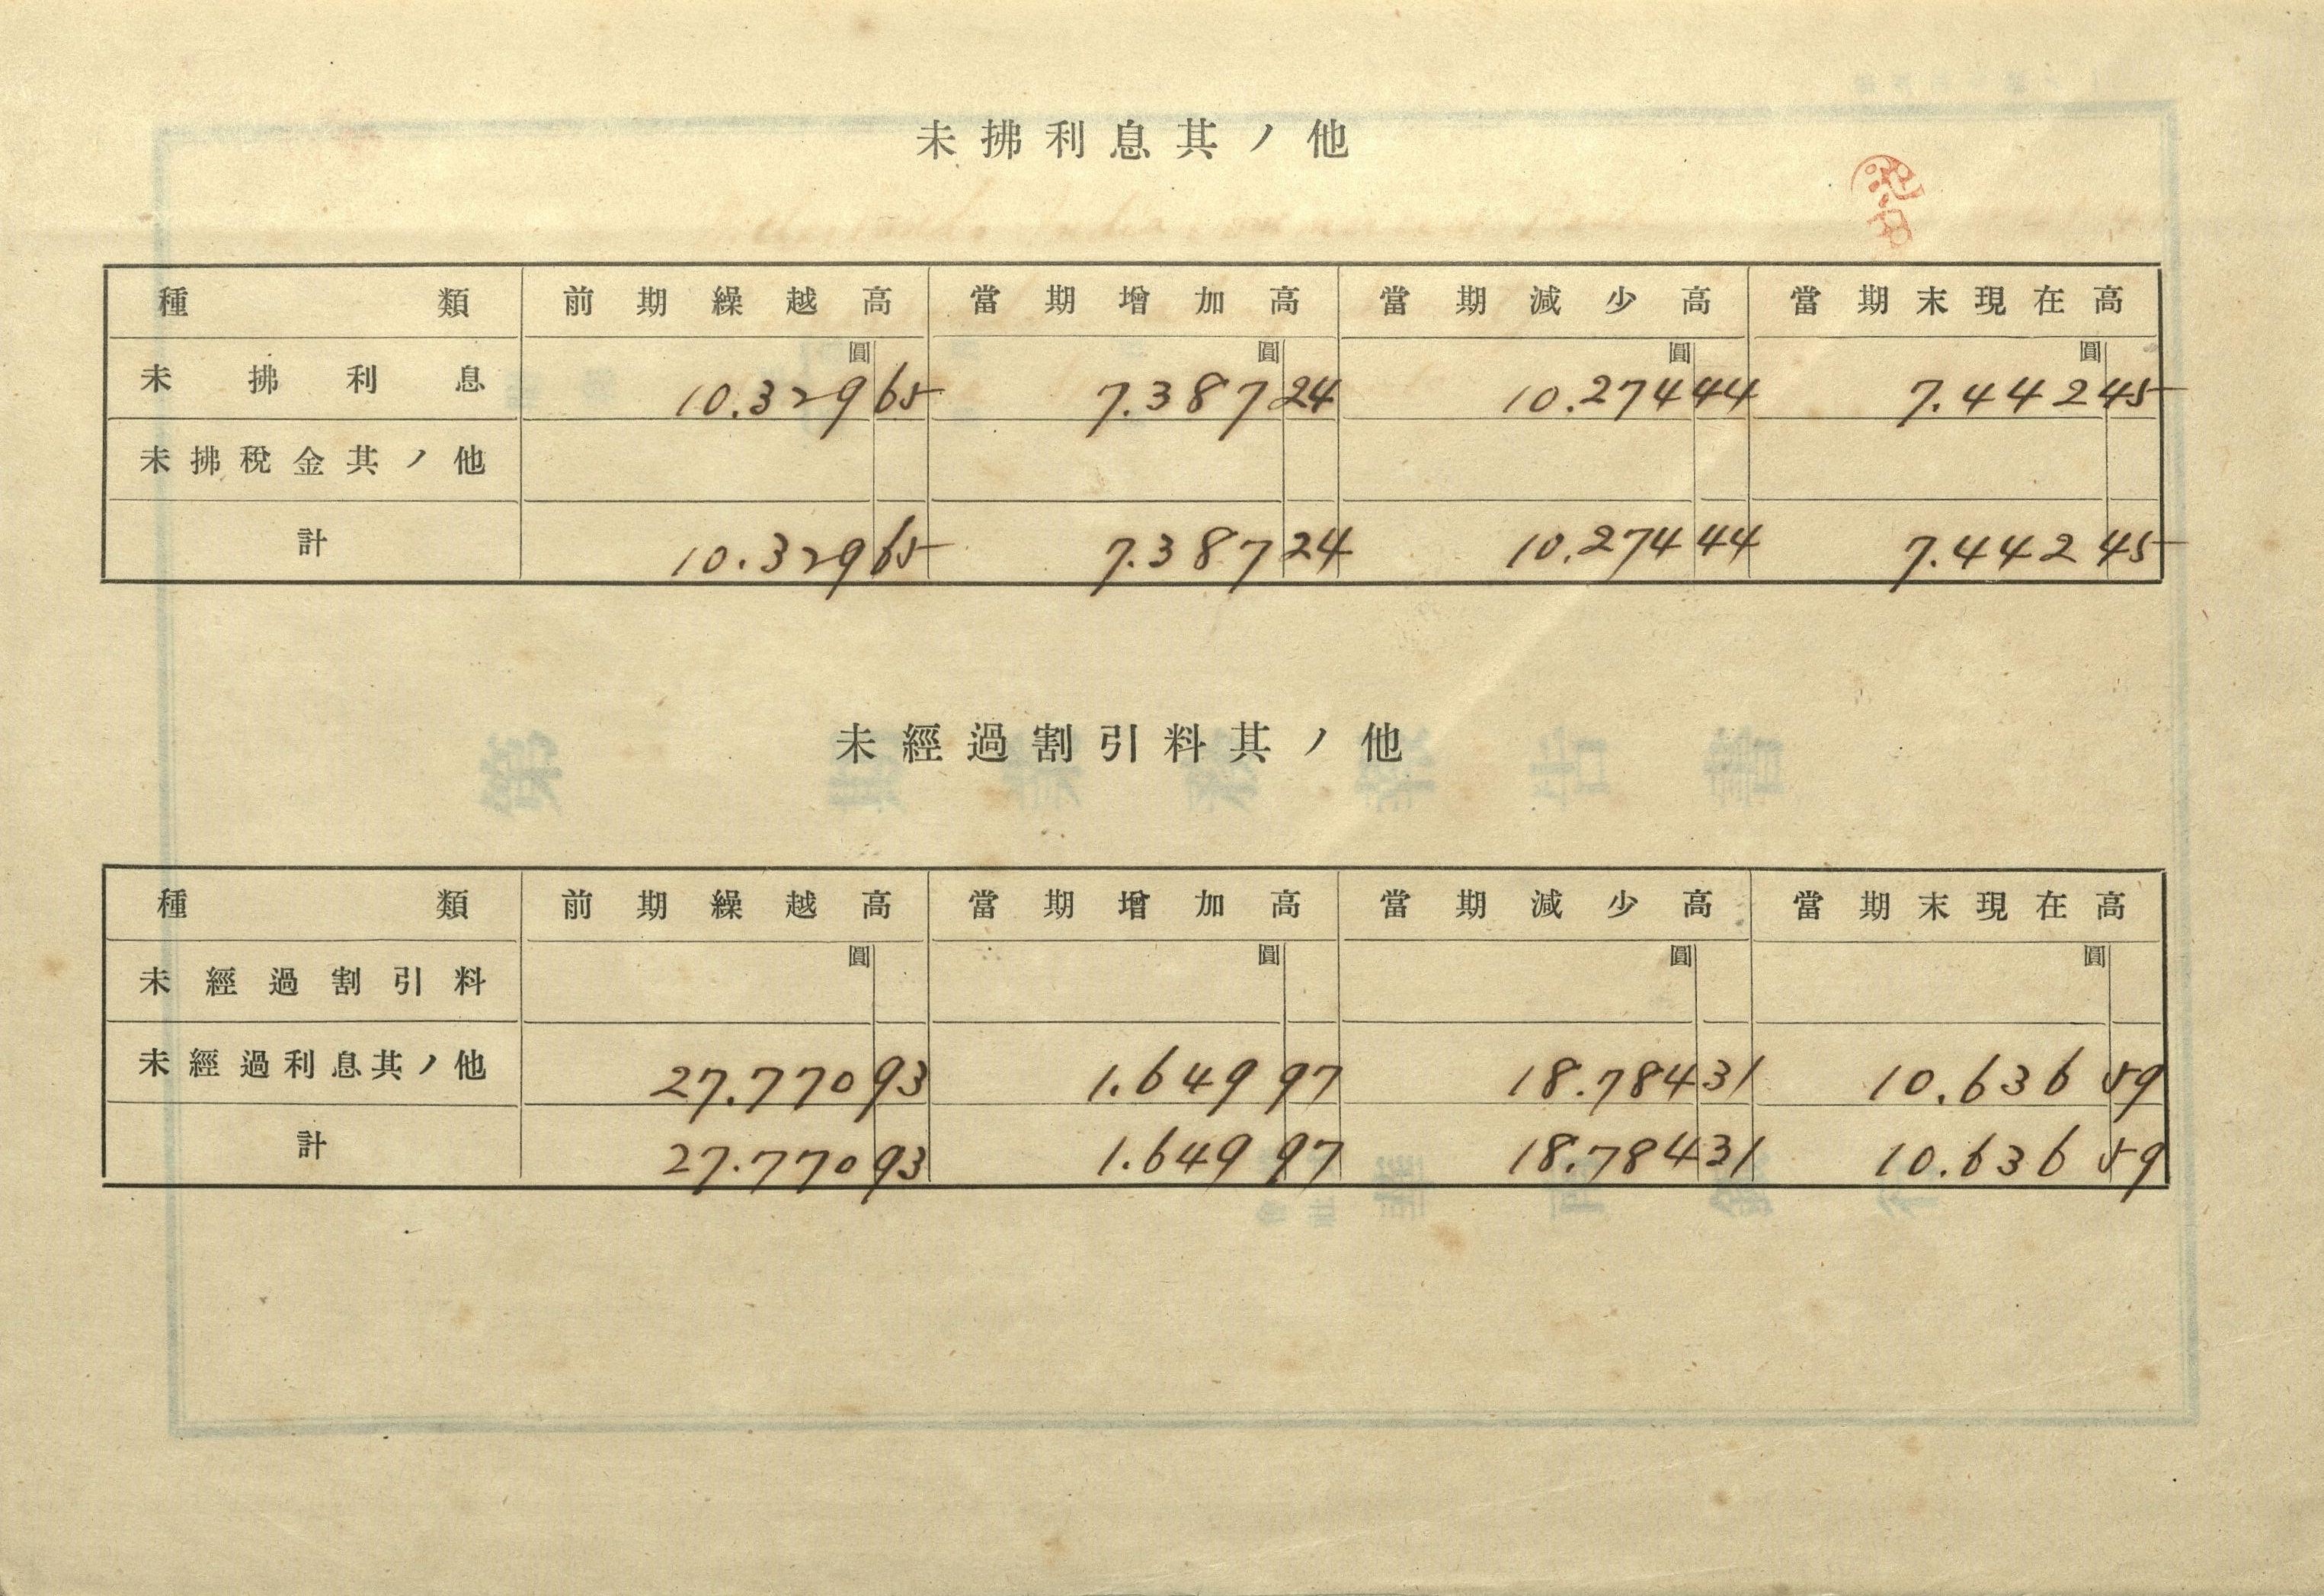 未拂利息其ノ他
種類 前期繰越高 當期增加高 當期減少高 當期末現在高
圓 圓 圓 圓
未拂利息 10.329 65 7.387 24 10.274 44 7.442 45
未拂稅金其ノ他
計 10.329 65 7.387 24 10.274 44 7.442 45
未經過割引料其ノ他
種類 前期繰越高 當期增加高 當期減少高 當期末現在高
圓 圓 圓 圓
未經過割引料
未經過利息其ノ他 27.770 93 1.649 97 18.784 31 10.636 59
計 27.770 93 1.649 97 18.784 31 10.636 59